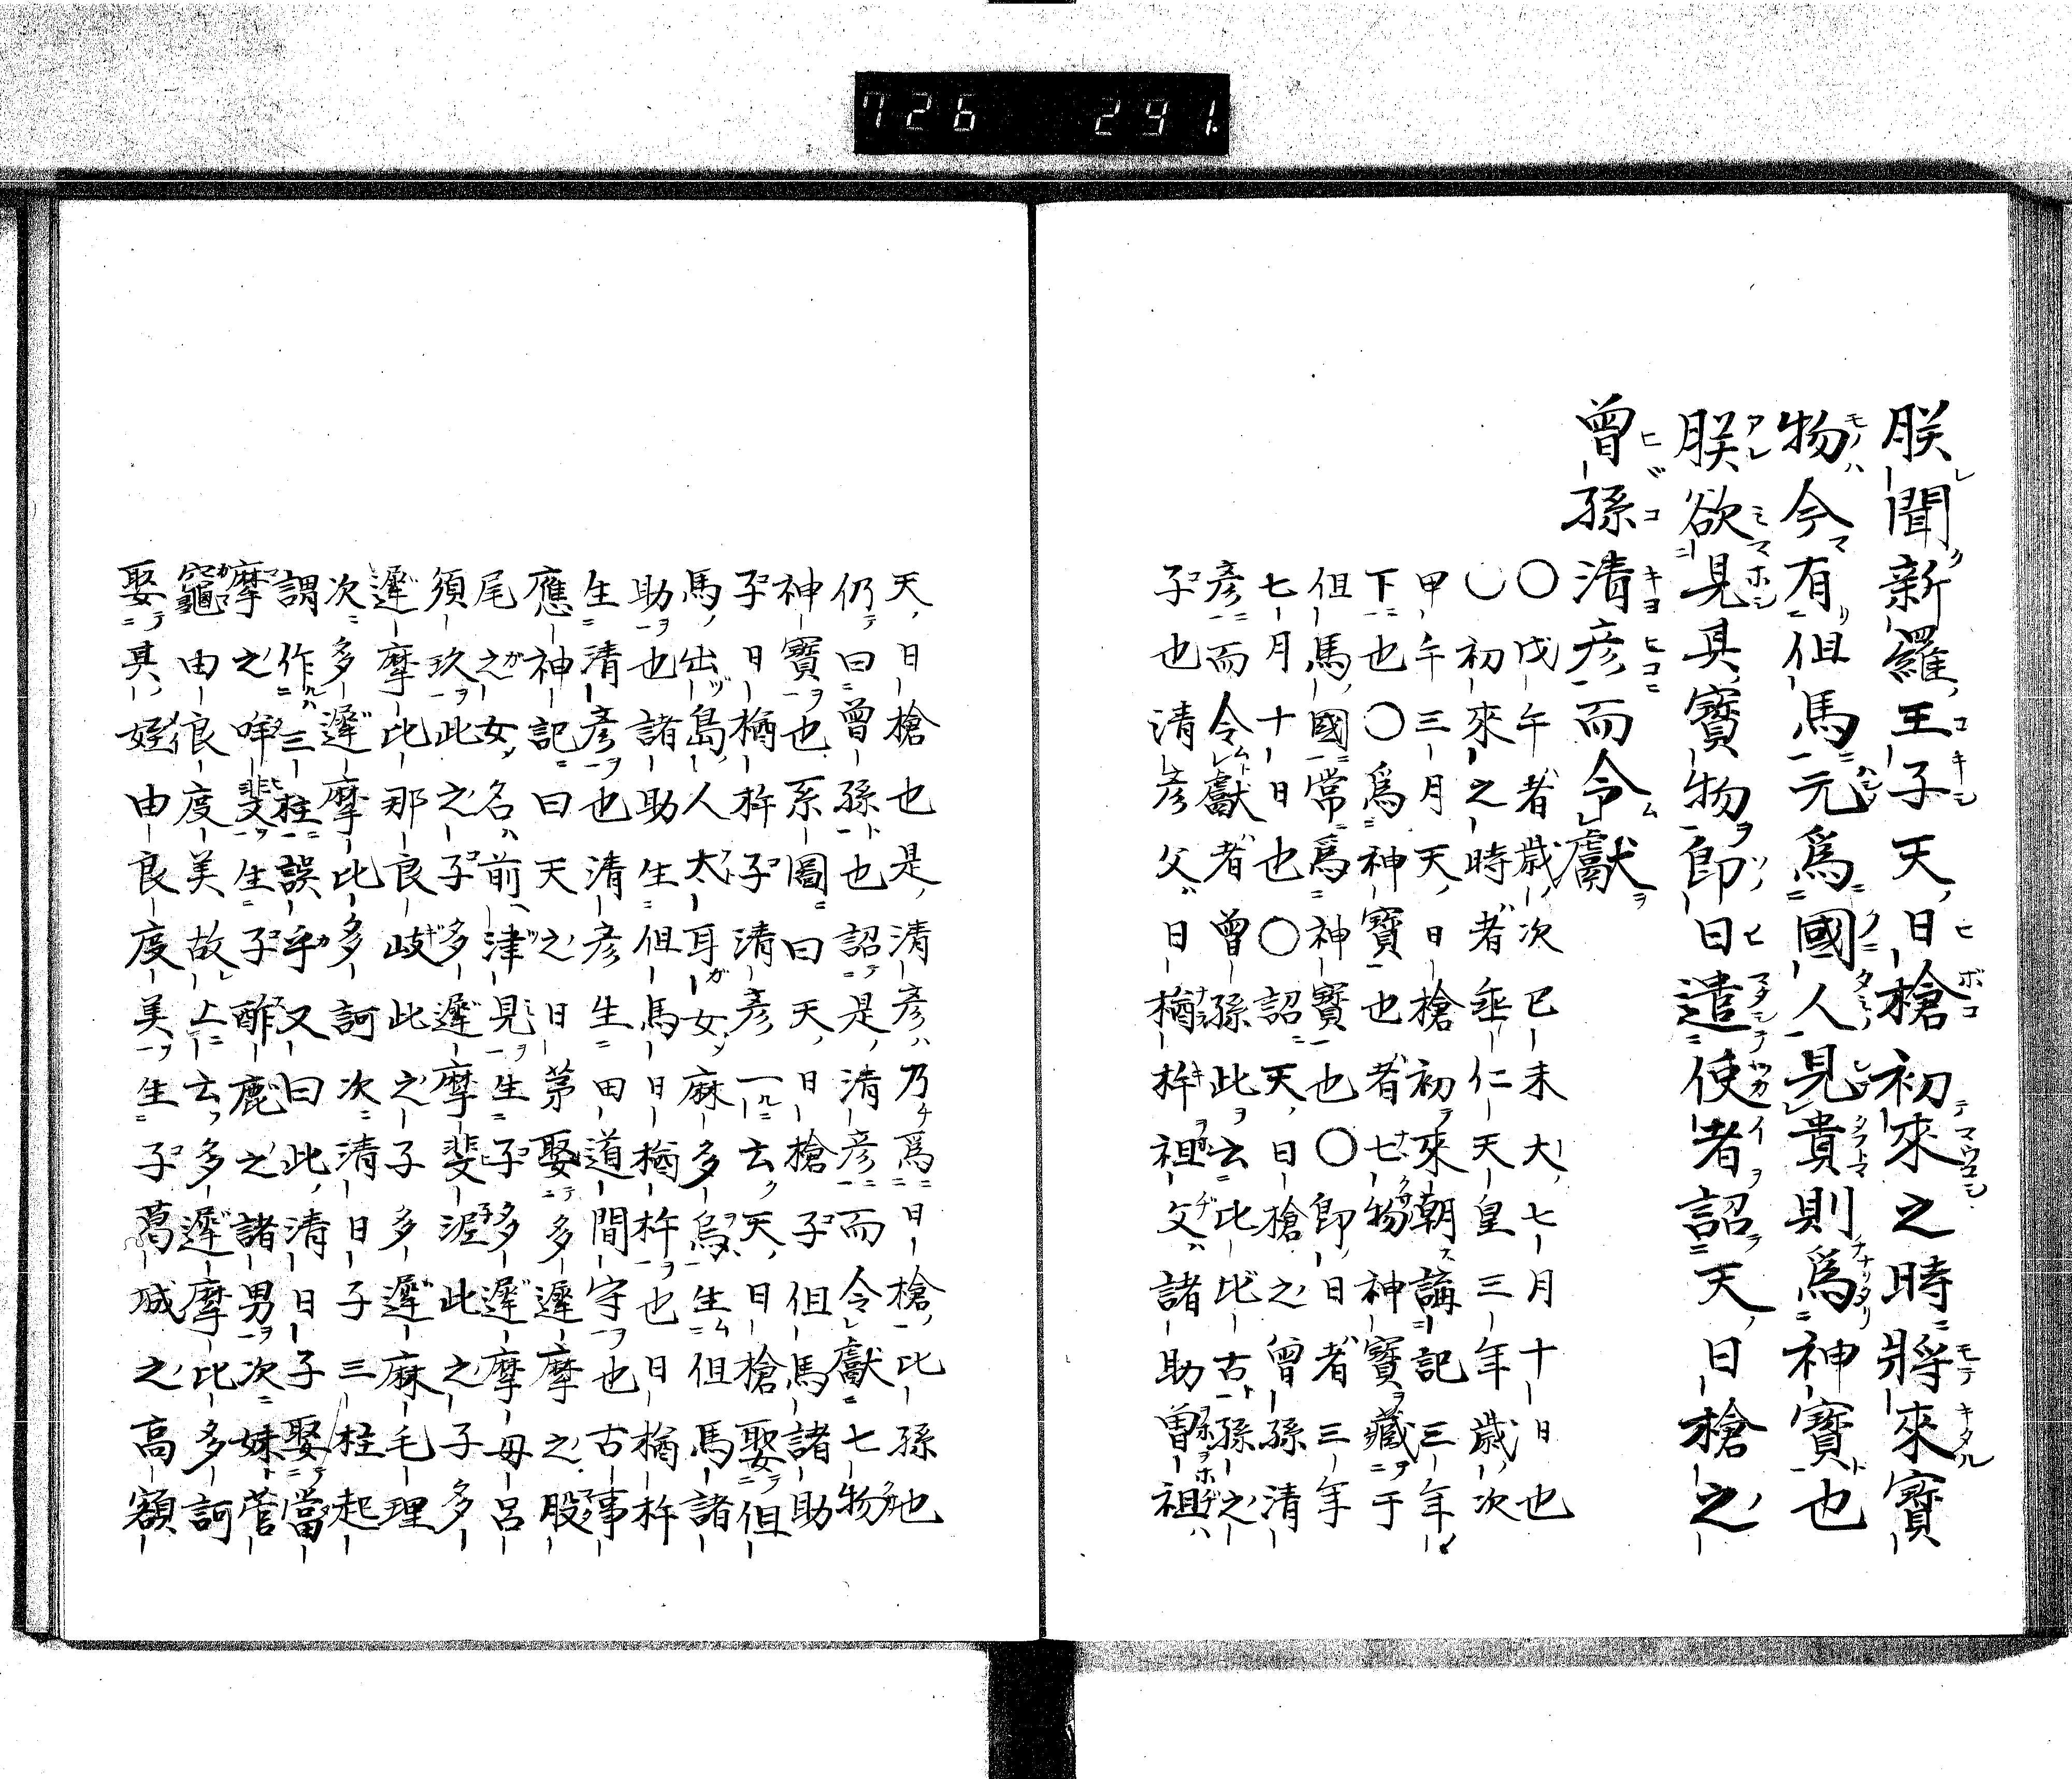 726 291.
朕聞新羅王子天日槍初來之時將來寶
物今有但馬元爲國人見貴則爲神寶也
朕欲見其寶物即日遣使者詔天日槍之
曾孫清彦而令獻
〇戊午者歳次己未大七月十日也
〇初來之時者垂仁天皇三年歳次
甲午三月天日槍初來朝講記三年
下也〇爲神寶也者七物神寶藏于
但馬國常爲神寶也〇即日者三年
七月十日也〇詔天日槍之曾孫清
彦而令獻者曾孫此云比比古孫之
子也清彦父日楢杵祖父諸助曽祖
天日槍也是清彦乃爲日槍比孫也
仍曰曾孫也詔是清彦而令獻七物
神寶也系圖曰天日槍子但馬諸助
子日楢杵子清彦一云天日槍娶但
馬出島人太耳女麻多烏生但馬諸
助也諸助生但馬日楢杵也日楢杵
生清彦也清彦生田道間守也古事
應神記曰天之日茅娶多遲摩之股
尾之女名前津見生子多遲摩母呂
須玖此之子多遲摩斐泥此之子多
遲摩比那良岐此之子多遲麻毛理
次多遲摩比多訶次清日子三柱起
謂作三柱誤乎又曰此清日子娶當
摩之咩斐生子酢鹿之諸男次妹菅
竈由良度美故上云多遲摩比多訶
娶其姪由良度美生子葛城之高額